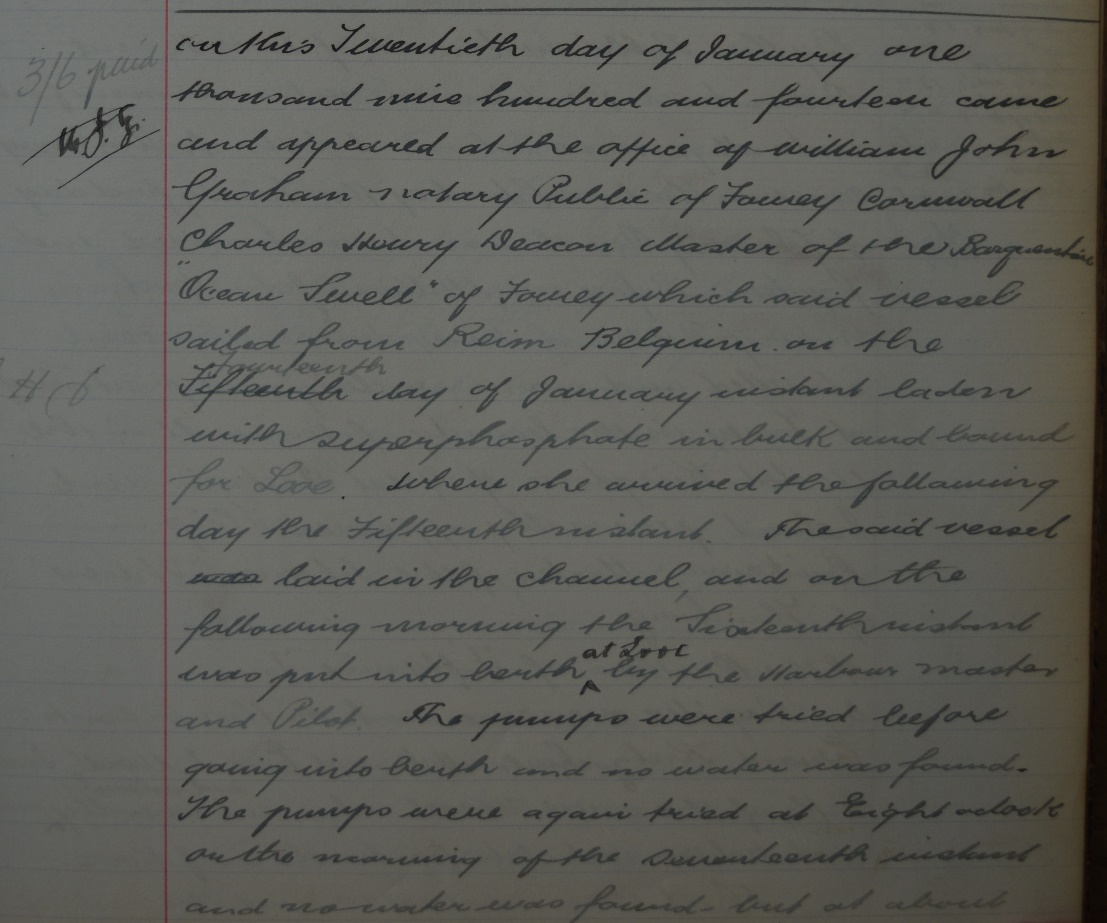 3/6 paid
W.J.G.
on this Twentieth day of January one
thousand nine hundred and fourteen came
and appeared at the office of William John
Graham notary Public of Fowey Cornwall
Charles Henry Deacon Master of the Barquentine
"Ocean Swell" of Fowey which said vessel
sailed from Reim Belgium on the
fourteenth
Fifteenth day of January instant laden
with superphosphate in bulk and bound
for Looe. Where she arrived the following
day the Fifteenth instant. The said vessel
was laid in the channel, and on the
following morning the Sixteenth instant
at Looe
was put into berth by the Harbour master
and Pilot. The pumps were tried before
going into berth and no water was found.
The pumps were again tried at Eight oclock
on the morning of the Seventeenth instant
and no water was found but at about